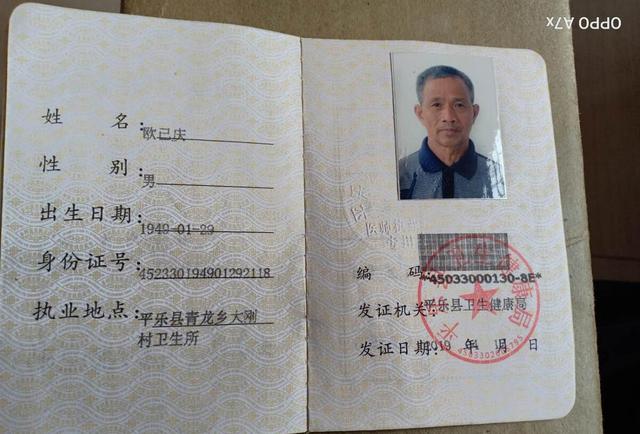 姓 名：欧已庆
性 别：男
出生日期：1949-01-29
身份证号：452330194901292118
执业地点：平乐县青龙乡大刚
村卫生所
编 码：*45033000130-8E*
发证机关：平乐县卫生健康局
发证日期：2019 年 月 日
OPPO A7x